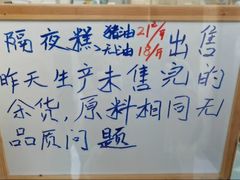 隔夜糕 猪油21元/斤 出售
无油18/斤
昨天生产未售完的
余货,原料相同无
品质问题